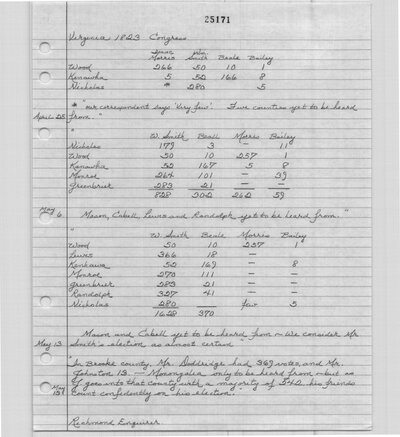 25171
Virginia 1823 Congress
Isaac Morris Wm. Smith Beale Bailey
Wood 266 50 10 1
Kanawha 5 52 166 8
Nicholas * 280 5
* "our correspondent says 'Very few'. Five counties yet to be heard
April 25 from."
"
W. Smith Beall Morris Bailey
Nicholas 179 3 — 11
Wood 50 10 257 1
Kanawha 52 167 5 8
Monroe 264 101 — 39
Greenbrier 283 21 —
828 302 262 59
May 6 Mason, Cabell, Lewis and Randolph yet to be heard from."
"
W. Smith Beale Morris Bailey
Wood 50 10 257 1
Lewis 366 18 —
Kankawa 52 169 — 8
Monroe 270 111 —
Greenbrier 283 21 —
Randolph 327 41 —
Nicholas 280 few 5
1628 370
Mason and Cabell yet to be heard from — We consider Mr
May 13 Smith's election as almost certain
"In Brooke county, Mr. Doddridge had 369 votes, and Mr.
Johnston 13. — Monongalia only to be heard from — but as
May 13 goes into that county with a majority of 542 his friends
count confidently on his election."
Richmond Enquirer